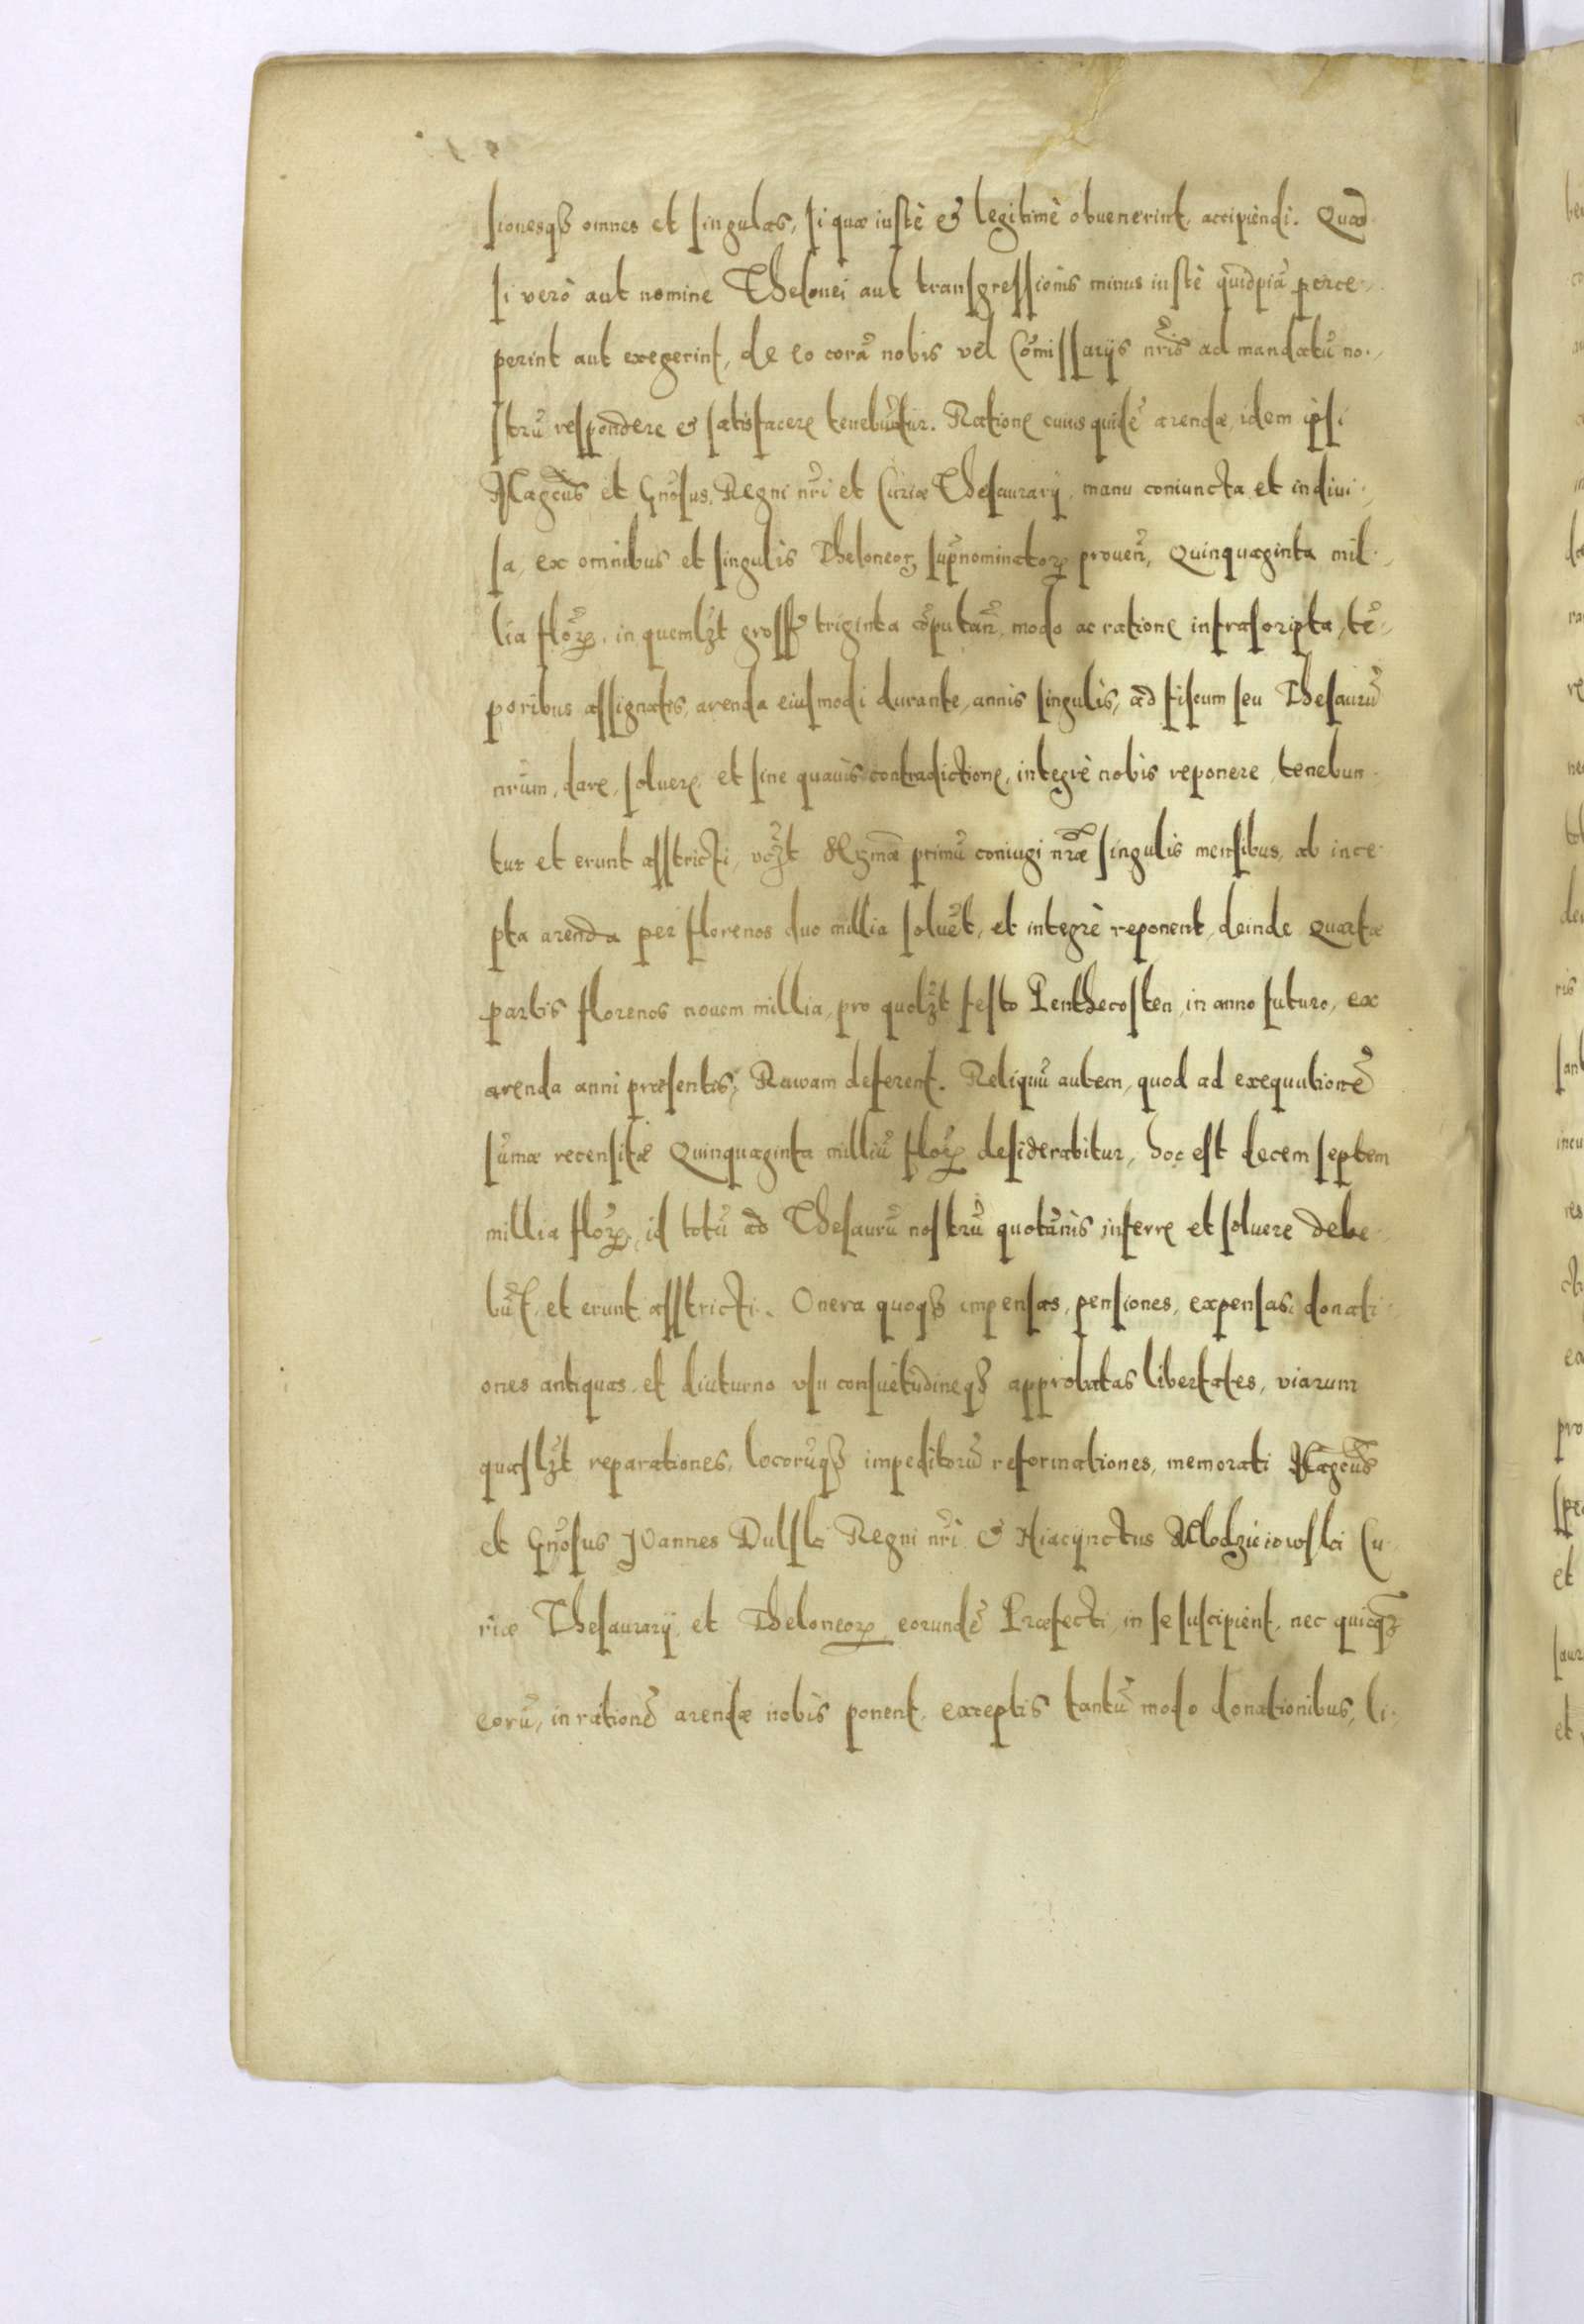 sionesqз omnes et singulas, si quæ iustè & legitimè obuenerint, accipiendi. Quod
si verò aut nomine Thelonei aut transgressionis minus iustè quidpiā perce-
perint aut exegerint, de eo corā nobis vel Cōmissarijs nris̄ ad mandatū no-
strū respondere & satisfacere tenebūtur. Ratione cuius quidē arendæ, idem ipsi
Magcus̄ et Gnōsus, Regni nrī et Curiæ Thesaurarij, manu coniuncta et indiui-
sa, ex omnibus et singulis Theloneoꝝ sup̄nominatoꝝ prouen̄, Quinquaginta mil-
lia floꝝ, in quemlꝫt gross̄ triginta cōputan̄, modo ac ratione infrascripta, tē-
poribus assignatis, arenda eiusmodi durante, annis singulis, ad fiscum seu Thesaurū
nrūm, dare, soluere, et sine quauis contradictione, integrè nobis reponere, tenebun-
tur et erunt asstricti, vcꝫt primū coniugi nrǣ singulis mensibus, ab ince-
pta arenda per florenos duo millia soluēt, et integrè reponent, deinde Quartæ
partis florenos nouem millia, pro quolꝫt festo Penthecosten, in anno futuro, ex
arenda anni præsentis, Rawam deferent. Reliquū autem, quod ad exequutionē
sūmæ recensitæ Quinquaginta milliū floꝝ desiderabitur, hoc est decem septem
millia floꝝ, id totū ad Thesaurū nostrū quotānis inferre et soluere debe-
būt, et erunt asstricti. Onera quoqз impensas, pensiones, expensas, donati-
ones antiquas, et diuturno vsu consuetudineqз approbatas libertates, viarum
quaslꝫt reparationes, locorūqз impeditorū reformationes, memorati Magcus̄
et Gnōsus Joannes Dulski Regni nrī & Hiacynctus Mlodzieiowski Cu-
riæ Thesaurarij, et Theloneoꝝ eorundē Præfecti, in se suscipient, nec quicqꝫ
eorū, in rationē arendæ nobis ponent, exceptis tantū modo donationibus, li-